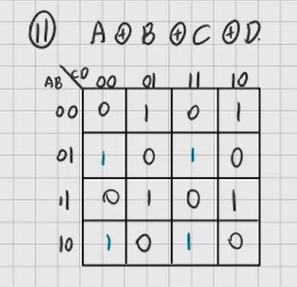 11 A ⊕ B ⊕ C ⊕ D
AB CD 00 01 11 10
00 0 1 0 1
01 1 0 1 0
11 0 1 0 1
10 1 0 1 0